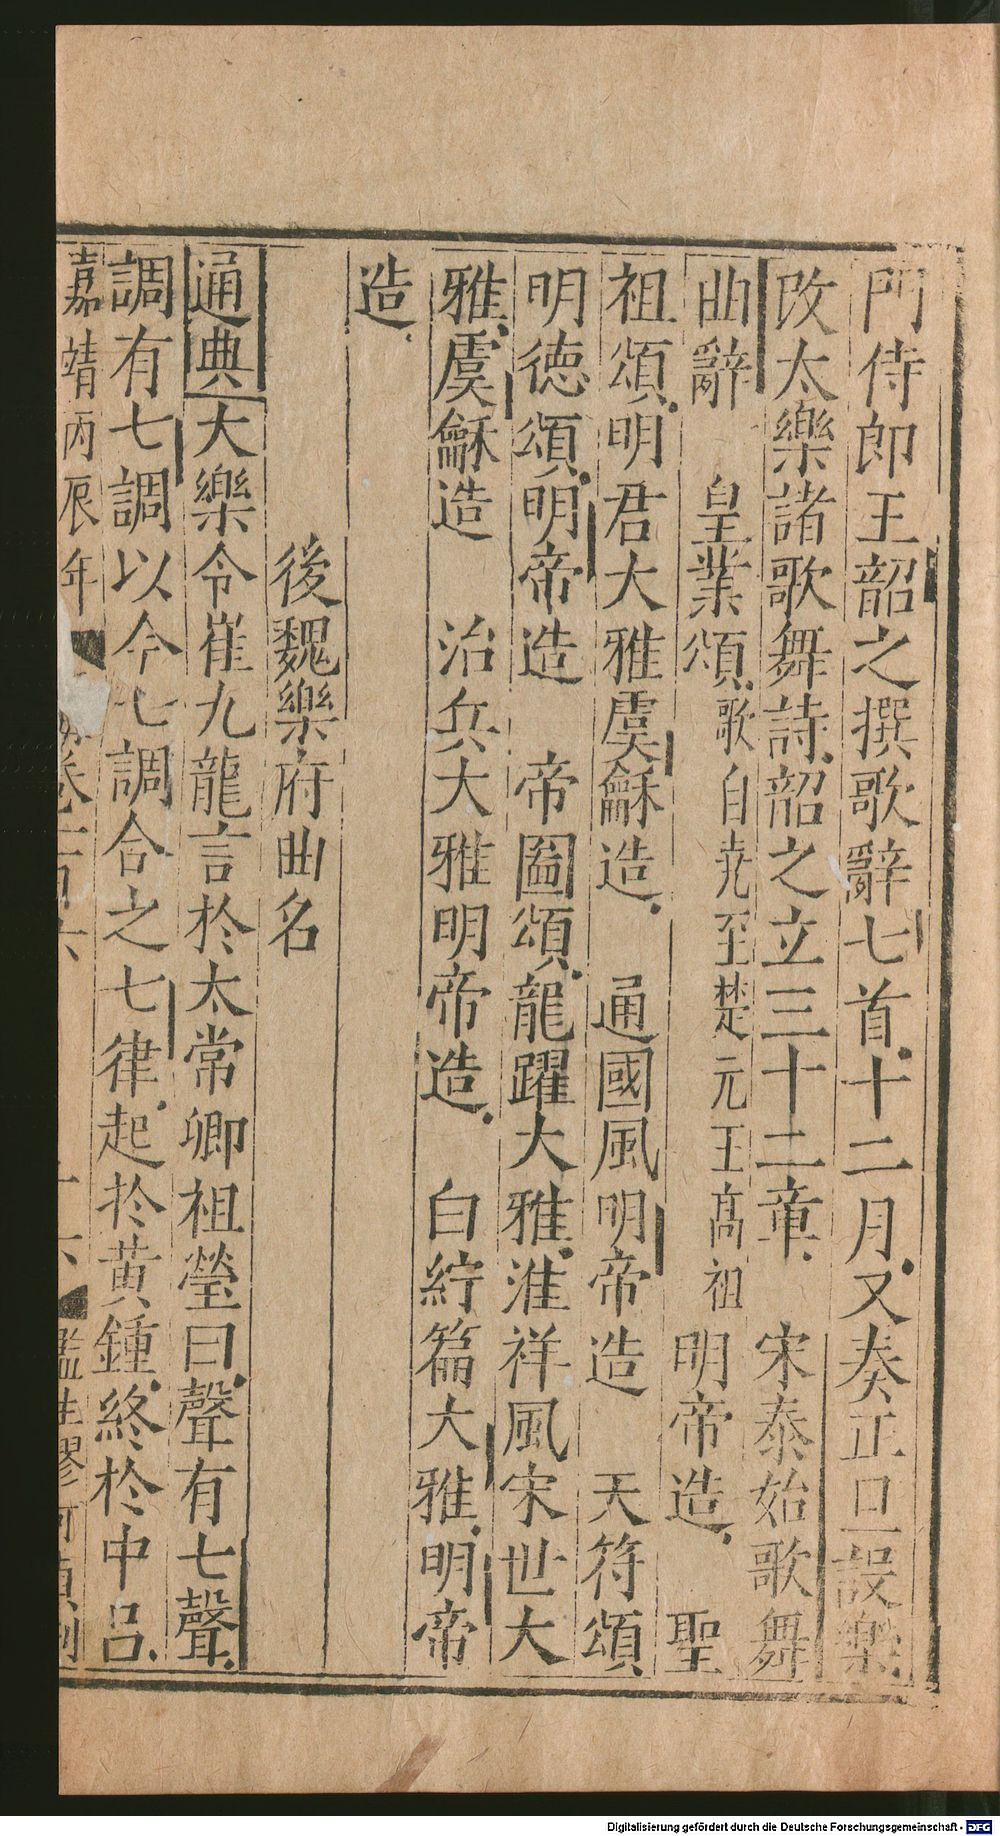 門侍郎王韶之撰歌辭七首十二月又奏正旦設樂
改太樂諸歌舞詩韶之立三十二章　宋泰始歌舞
曲辭　皇業頌歌自堯至楚元王高祖　明帝造　聖
祖頌明君大雅虞龢造　通國風明帝造　天符頌
明德頌明帝造　帝圖頌龍躍大雅淮祥風宋世大
雅虞龢造　治兵大雅明帝造　白紵篇大雅明帝
造
後魏樂府曲名
通典大樂令崔九龍言於太常卿祖瑩曰聲有七聲
調有七調以今七調合之七律起於黃鍾終於中呂
嘉靖丙辰年　卷一百六　十六　監生繆
Digitalisierung gefördert durch die Deutsche Forschungsgemeinschaft - DFG